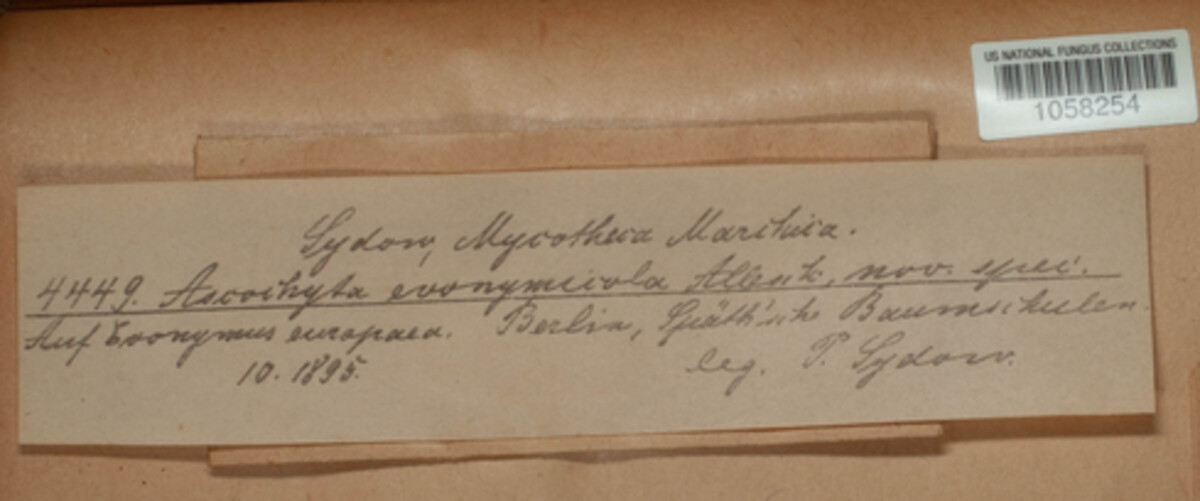 US NATIONAL FUNGUS COLLECTIONS
1058254
Sydow, Mycotheca Marchica.
4449. Ascochyta evonymicola Allesch., nov. spec.
Auf Evonymus europaea. Berlin, Späth'sche Baumschulen.
10. 1895. leg. P. Sydow.